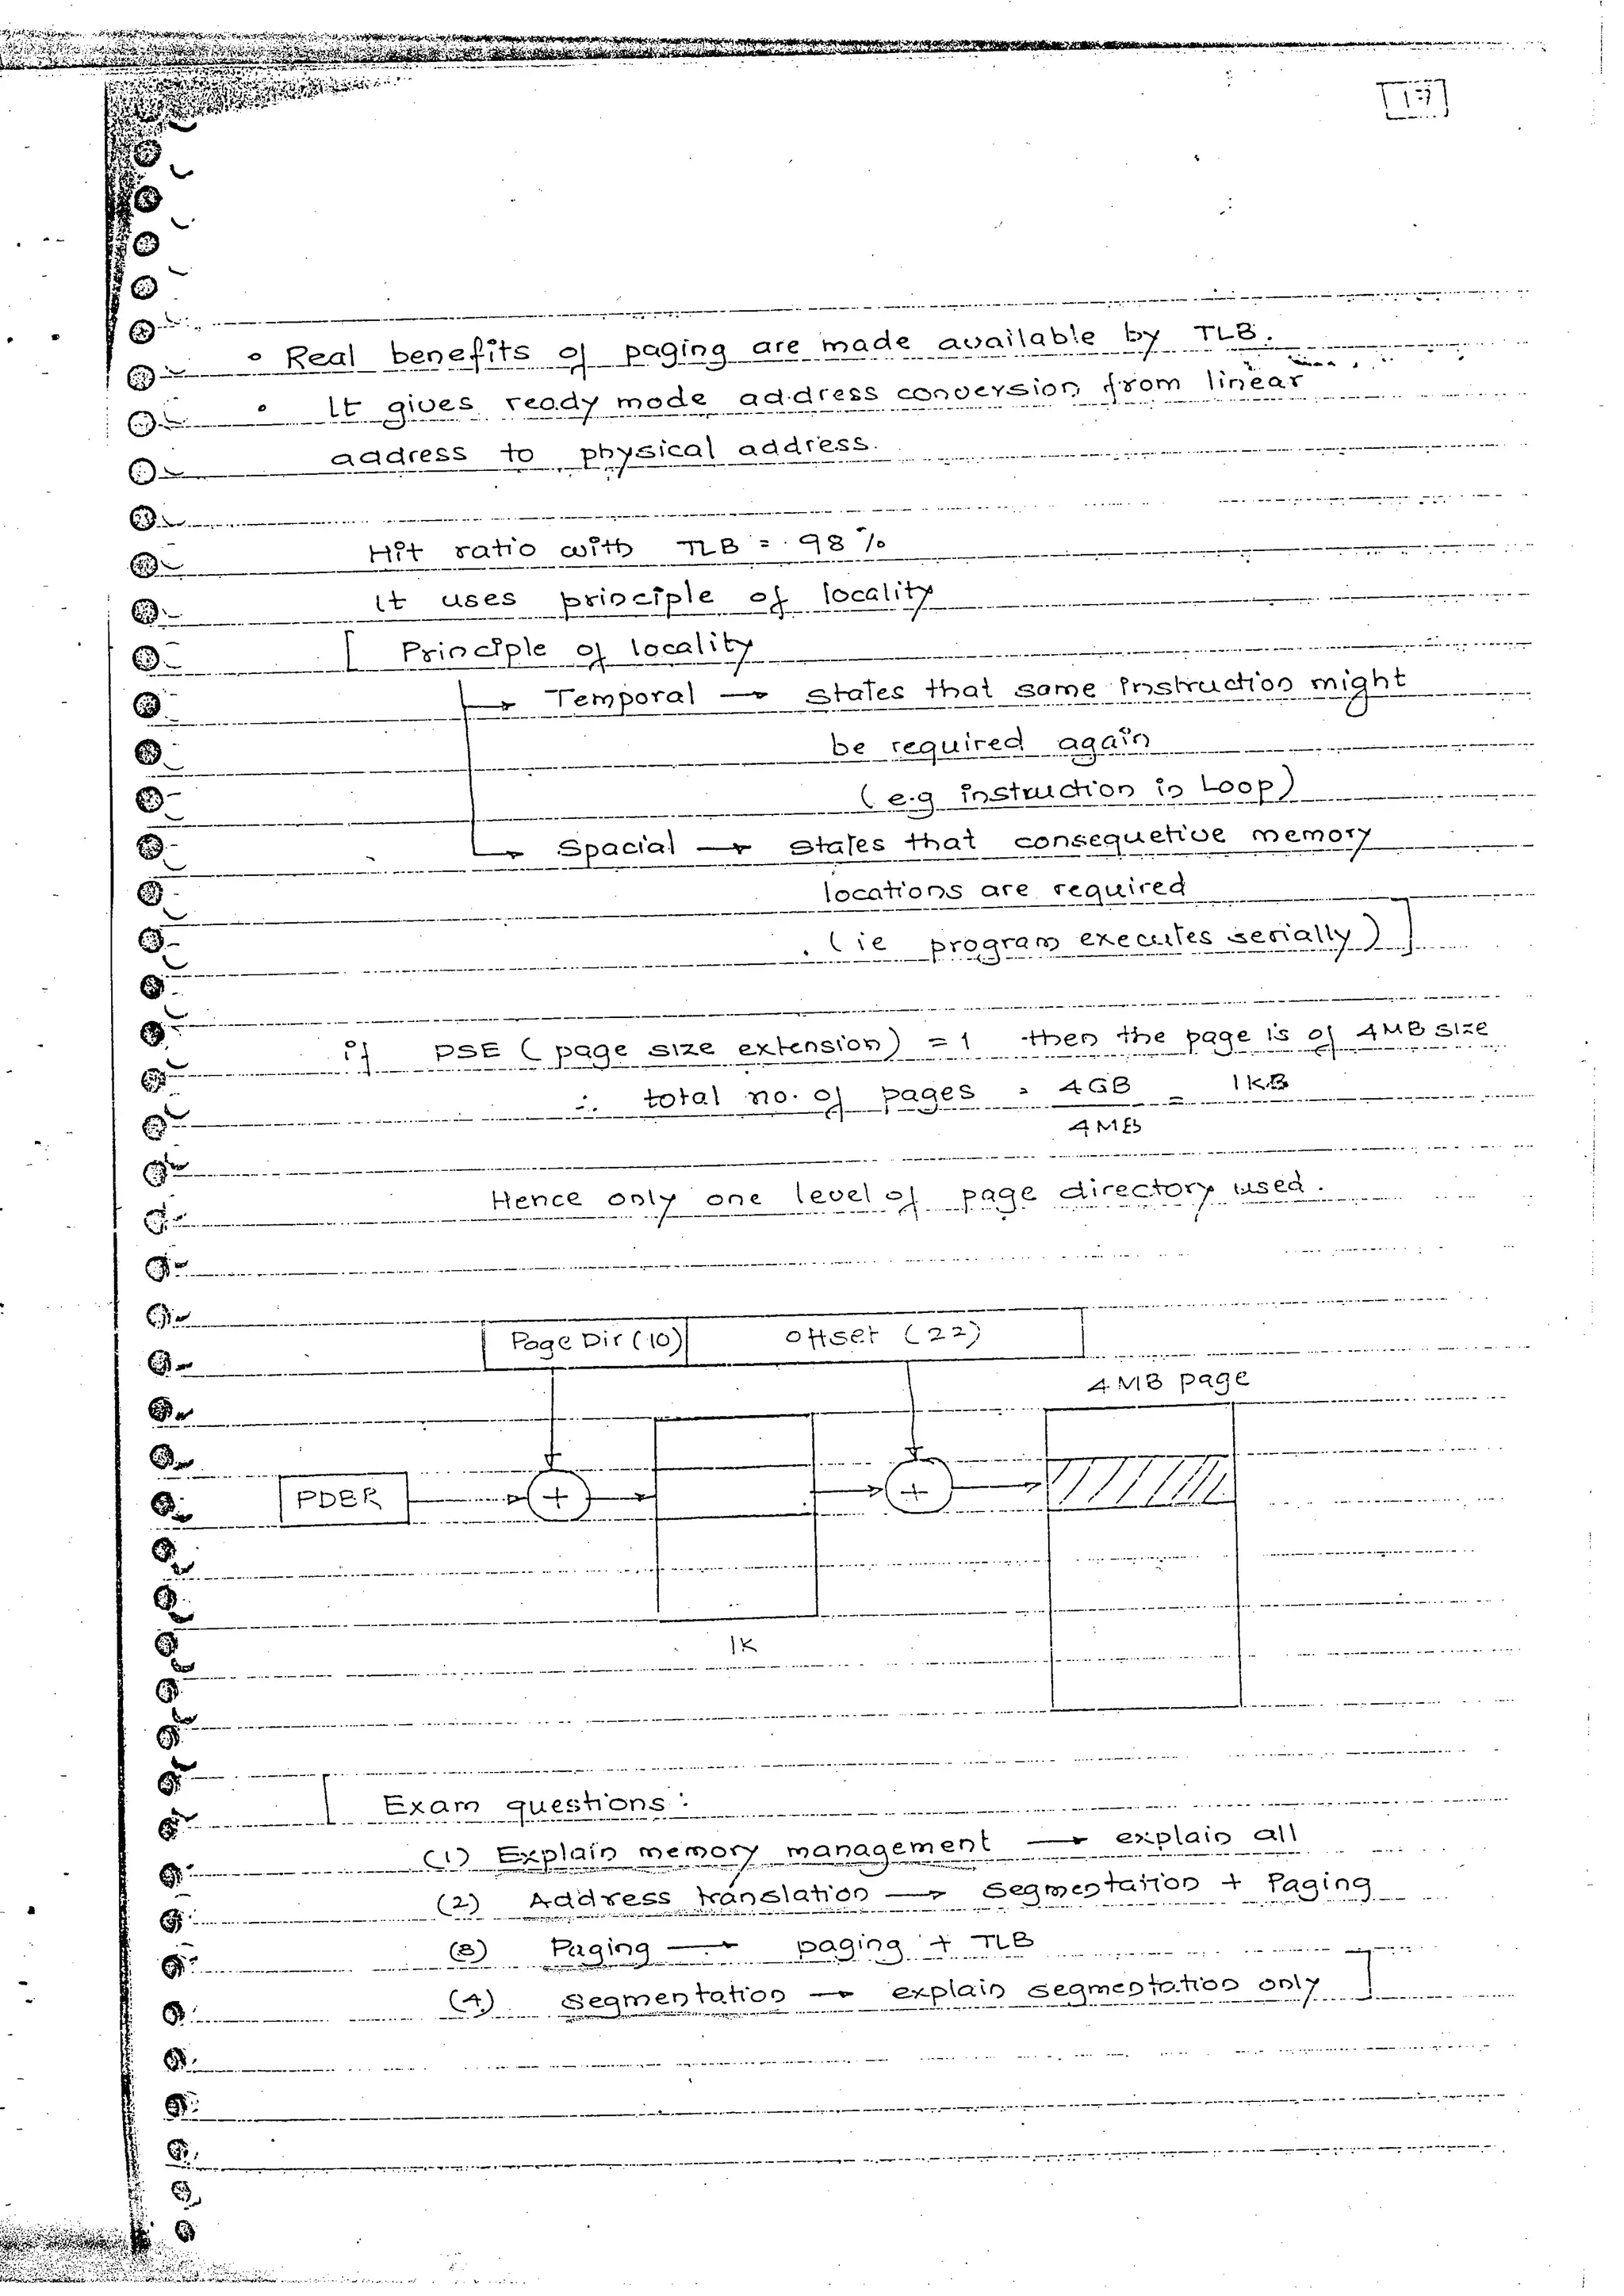 17
• Real benefits of paging are made available by TLB.
• It gives ready mode address conversion from linear
address to physical address.
Hit ratio with TLB = 98 %
It uses principle of locality
[ Principle of locality
→ Temporal → states that same instruction might
be required again
(e.g instruction in Loop)
→ Spacial → states that consequetive memory
locations are required
(ie program executes serially) ]
if PSE (page size extension) = 1 then the page is of 4MB size
∴ total no. of pages = 4GB = 1KB
4MB
Hence only one level of page directory used.
Page Dir (10) offset (22)
4 MB page
PDBR + +
1K
[ Exam questions :
(1) Explain memory management → explain all
(2) Address translation → segmentation + Paging
(3) Paging → paging + TLB
(4) segmentation → explain segmentation only ]